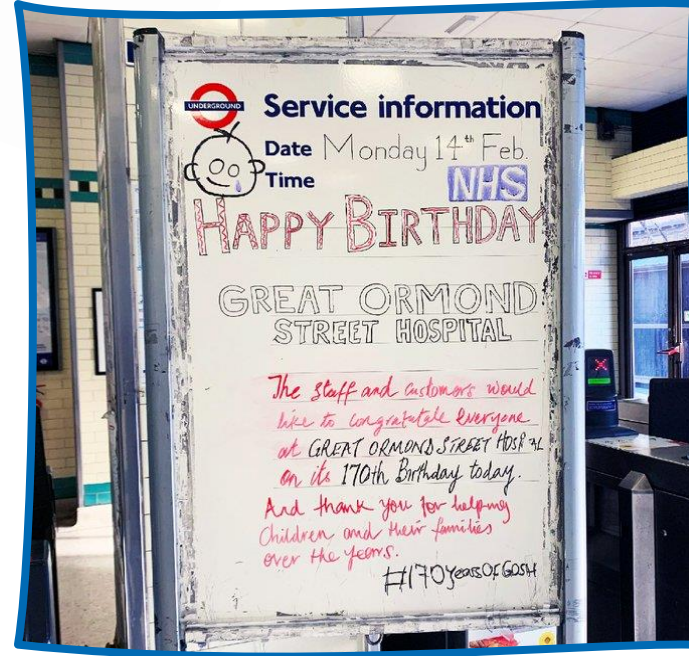 UNDERGROUND
Service information
Date Monday 14th Feb
Time
NHS
HAPPY BIRTHDAY
GREAT ORMOND
STREET HOSPITAL
The staff and customers would
like to congratulate everyone
at GREAT ORMOND STREET HOSPITAL
on its 170th Birthday today.
And thank you for helping
Children and their families
over the years.
#170YearsOfGOSH